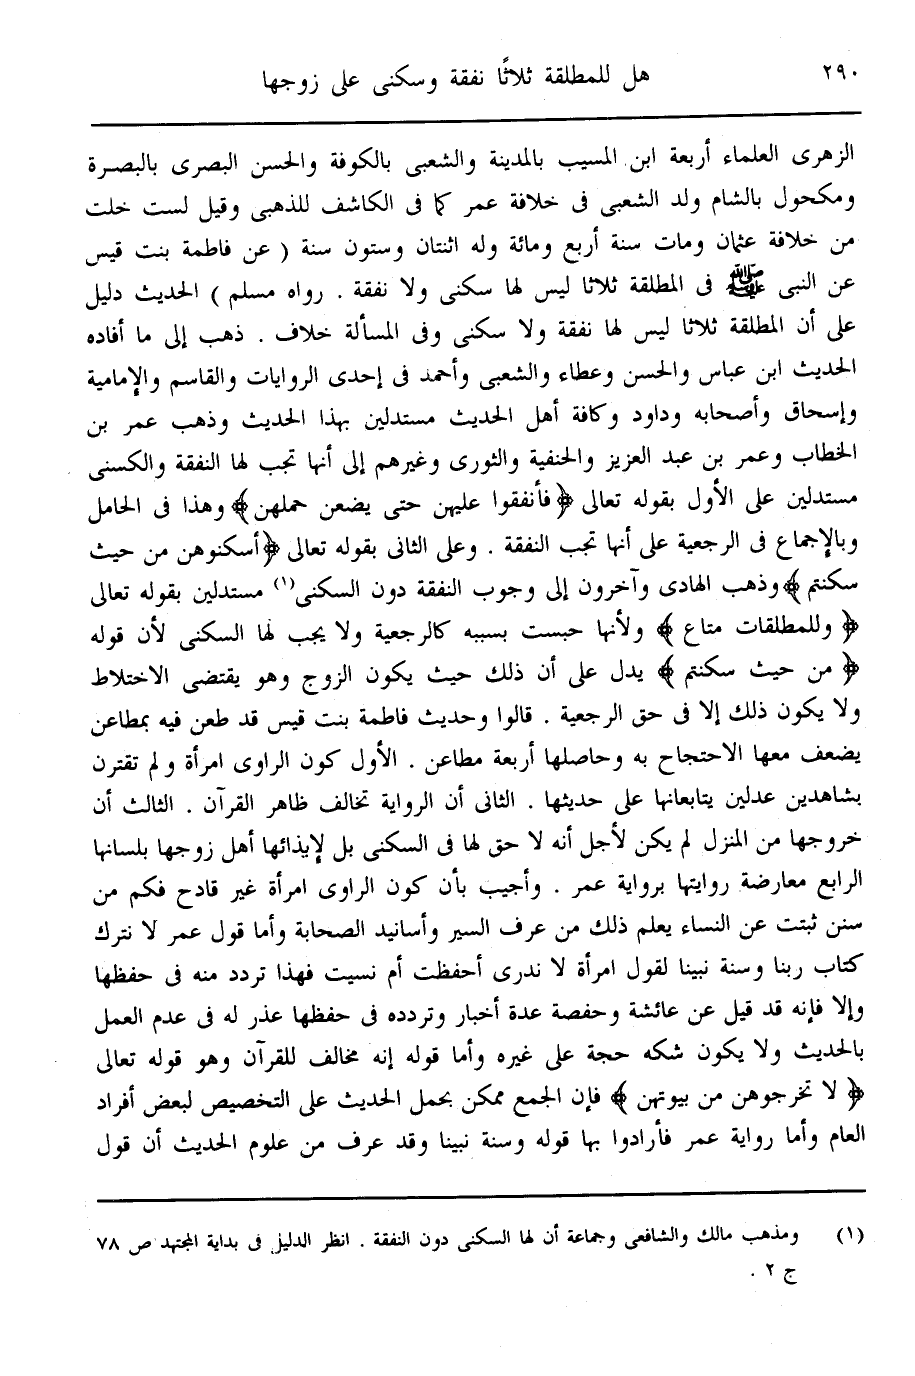 ٢٩٠
هل للمطلقة ثلاثًا نفقة وسكنى على زوجها
الزهرى العلماء أربعة ابن المسيب بالمدينة والشعبى بالكوفة والحسن البصرى بالبصرة
ومكحول بالشام ولد الشعبى فى خلافة عمر كما فى الكاشف للذهبى وقيل لست خلت
من خلافة عثمان ومات سنة أربع ومائة وله اثنتان وستون سنة ( عن فاطمة بنت قيس
عن النبى ﷺ فى المطلقة ثلاثا ليس لها سكنى ولا نفقة . رواه مسلم ) الحديث دليل
على أن المطلقة ثلاثا ليس لها نفقة ولا سكنى وفى المسألة خلاف . ذهب إلى ما أفاده
الحديث ابن عباس والحسن وعطاء والشعبى وأحمد فى إحدى الروايات والقاسم والإمامية
وإسحاق وأصحابه وداود وكافة أهل الحديث مستدلين بهذا الحديث وذهب عمر بن
الخطاب وعمر بن عبد العزيز والحنفية والثورى وغيرهم إلى أنها تجب لها النفقة والكسنى
مستدلين على الأول بقوله تعالى ﴿فأنفقوا عليهن حتى يضعن حملهن﴾ وهذا فى الحامل
وبالإجماع فى الرجعية على أنها تجب النفقة . وعلى الثانى بقوله تعالى ﴿أسكنوهن من حيث
سكنتم ﴾ وذهب الهادى وآخرون إلى وجوب النفقة دون السكنى(١) مستدلين بقوله تعالى
﴿ وللمطلقات متاع ﴾ ولأنها حبست بسببه كالرجعية ولا يجب لها السكنى لأن قوله
﴿ من حيث سكنتم ﴾ يدل على أن ذلك حيث يكون الزوج وهو يقتضى الاختلاط
ولا يكون ذلك إلا فى حق الرجعية . قالوا وحديث فاطمة بنت قيس قد طعن فيه بمطاعن
يضعف معها الاحتجاج به وحاصلها أربعة مطاعن . الأول كون الراوى امرأة ولم تقترن
بشاهدين عدلين يتابعانها على حديثها . الثانى أن الرواية تخالف ظاهر القرآن . الثالث أن
خروجها من المنزل لم يكن لأجل أنه لا حق لها فى السكنى بل لإيذائها أهل زوجها بلسانها
الرابع معارضة روايتها برواية عمر . وأجيب بأن كون الراوى امرأة غير قادح فكم من
سنن ثبتت عن النساء يعلم ذلك من عرف السير وأسانيد الصحابة وأما قول عمر لا نترك
كتاب ربنا وسنة نبينا لقول امرأة لا ندرى أحفظت أم نسيت فهذا تردد منه فى حفظها
وإلا فإنه قد قيل عن عائشة وحفصة عدة أخبار وتردده فى حفظها عذر له فى عدم العمل
بالحديث ولا يكون شكه حجة على غيره وأما قوله إنه مخالف للقرآن وهو قوله تعالى
﴿ لا تخرجوهن من بيوتهن ﴾ فإن الجمع ممكن بحمل الحديث على التخصيص لبعض أفراد
العام وأما رواية عمر فأرادوا بها قوله وسنة نبينا وقد عرف من علوم الحديث أن قول
(١) ومذهب مالك والشافعى وجماعة أن لها السكنى دون النفقة . انظر الدليل فى بداية المجتهد ص ٧٨
ج ٢ .